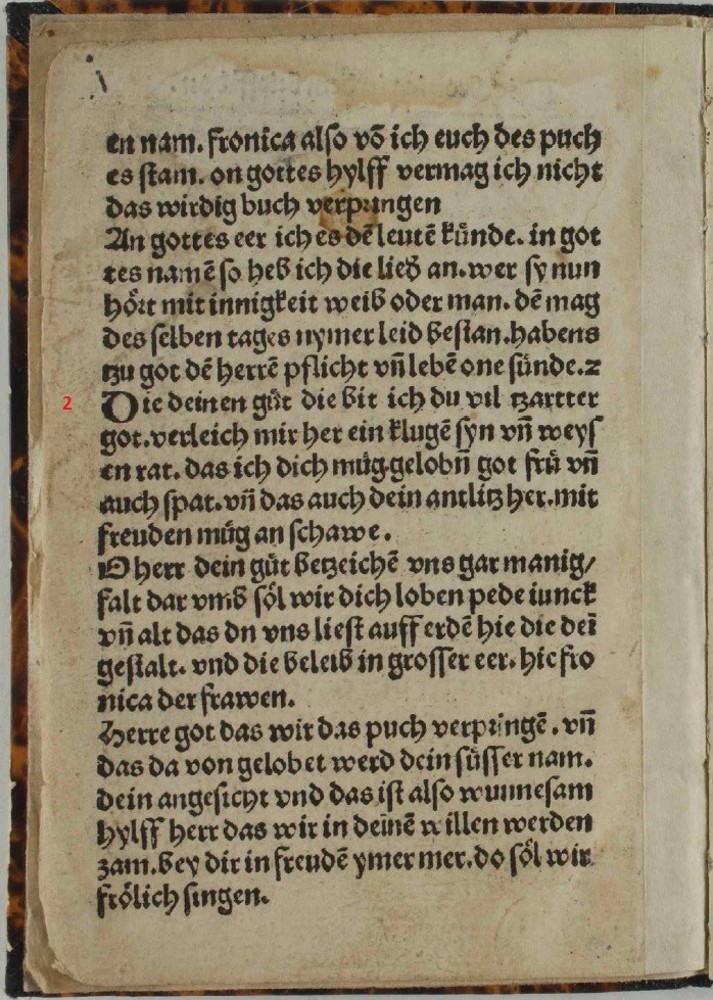 en nam. fronica also võ ich euch des puch
es stam. on gottes hylff vermag ich nicht
das wirdig buch verpringen
An gottes eer ich es dẽ leutẽ künde. in got
tes namẽ so heb ich die lied an. wer sy nun
hört mit innigkeit weib oder man. dẽ mag
des selben tages nymer leid bestan. habens
tzu got dẽ herrẽ pflicht vñ lebẽ one sünde. 2
2 Die deinen güt die bit ich du vil tzartter
got. verleich mir her ein klugẽ syn vñ weys
en rat. das ich dich müg gelobñ got frü vñ
auch spat. vñ das auch dein antlitz her. mit
freuden müg an schawe.
O herr dein güt betzeichẽ vns gar manig/
falt dar vmb söl wir dich loben pede iunck
vñ alt das dn vns liest auff erdẽ hie die deĩ
gestalt. vnd die beleib in grosser eer. hie fro
nica der frawen.
Herre got das wir das puch verpringẽ. vñ
das da von gelobet werd dein süsser nam.
dein angesicht vnd das ist also wunnesam
hylff herr das wir in deinẽ willen werden
zam. bey dir in freudẽ ymer mer. do söl wir
frölich singen.